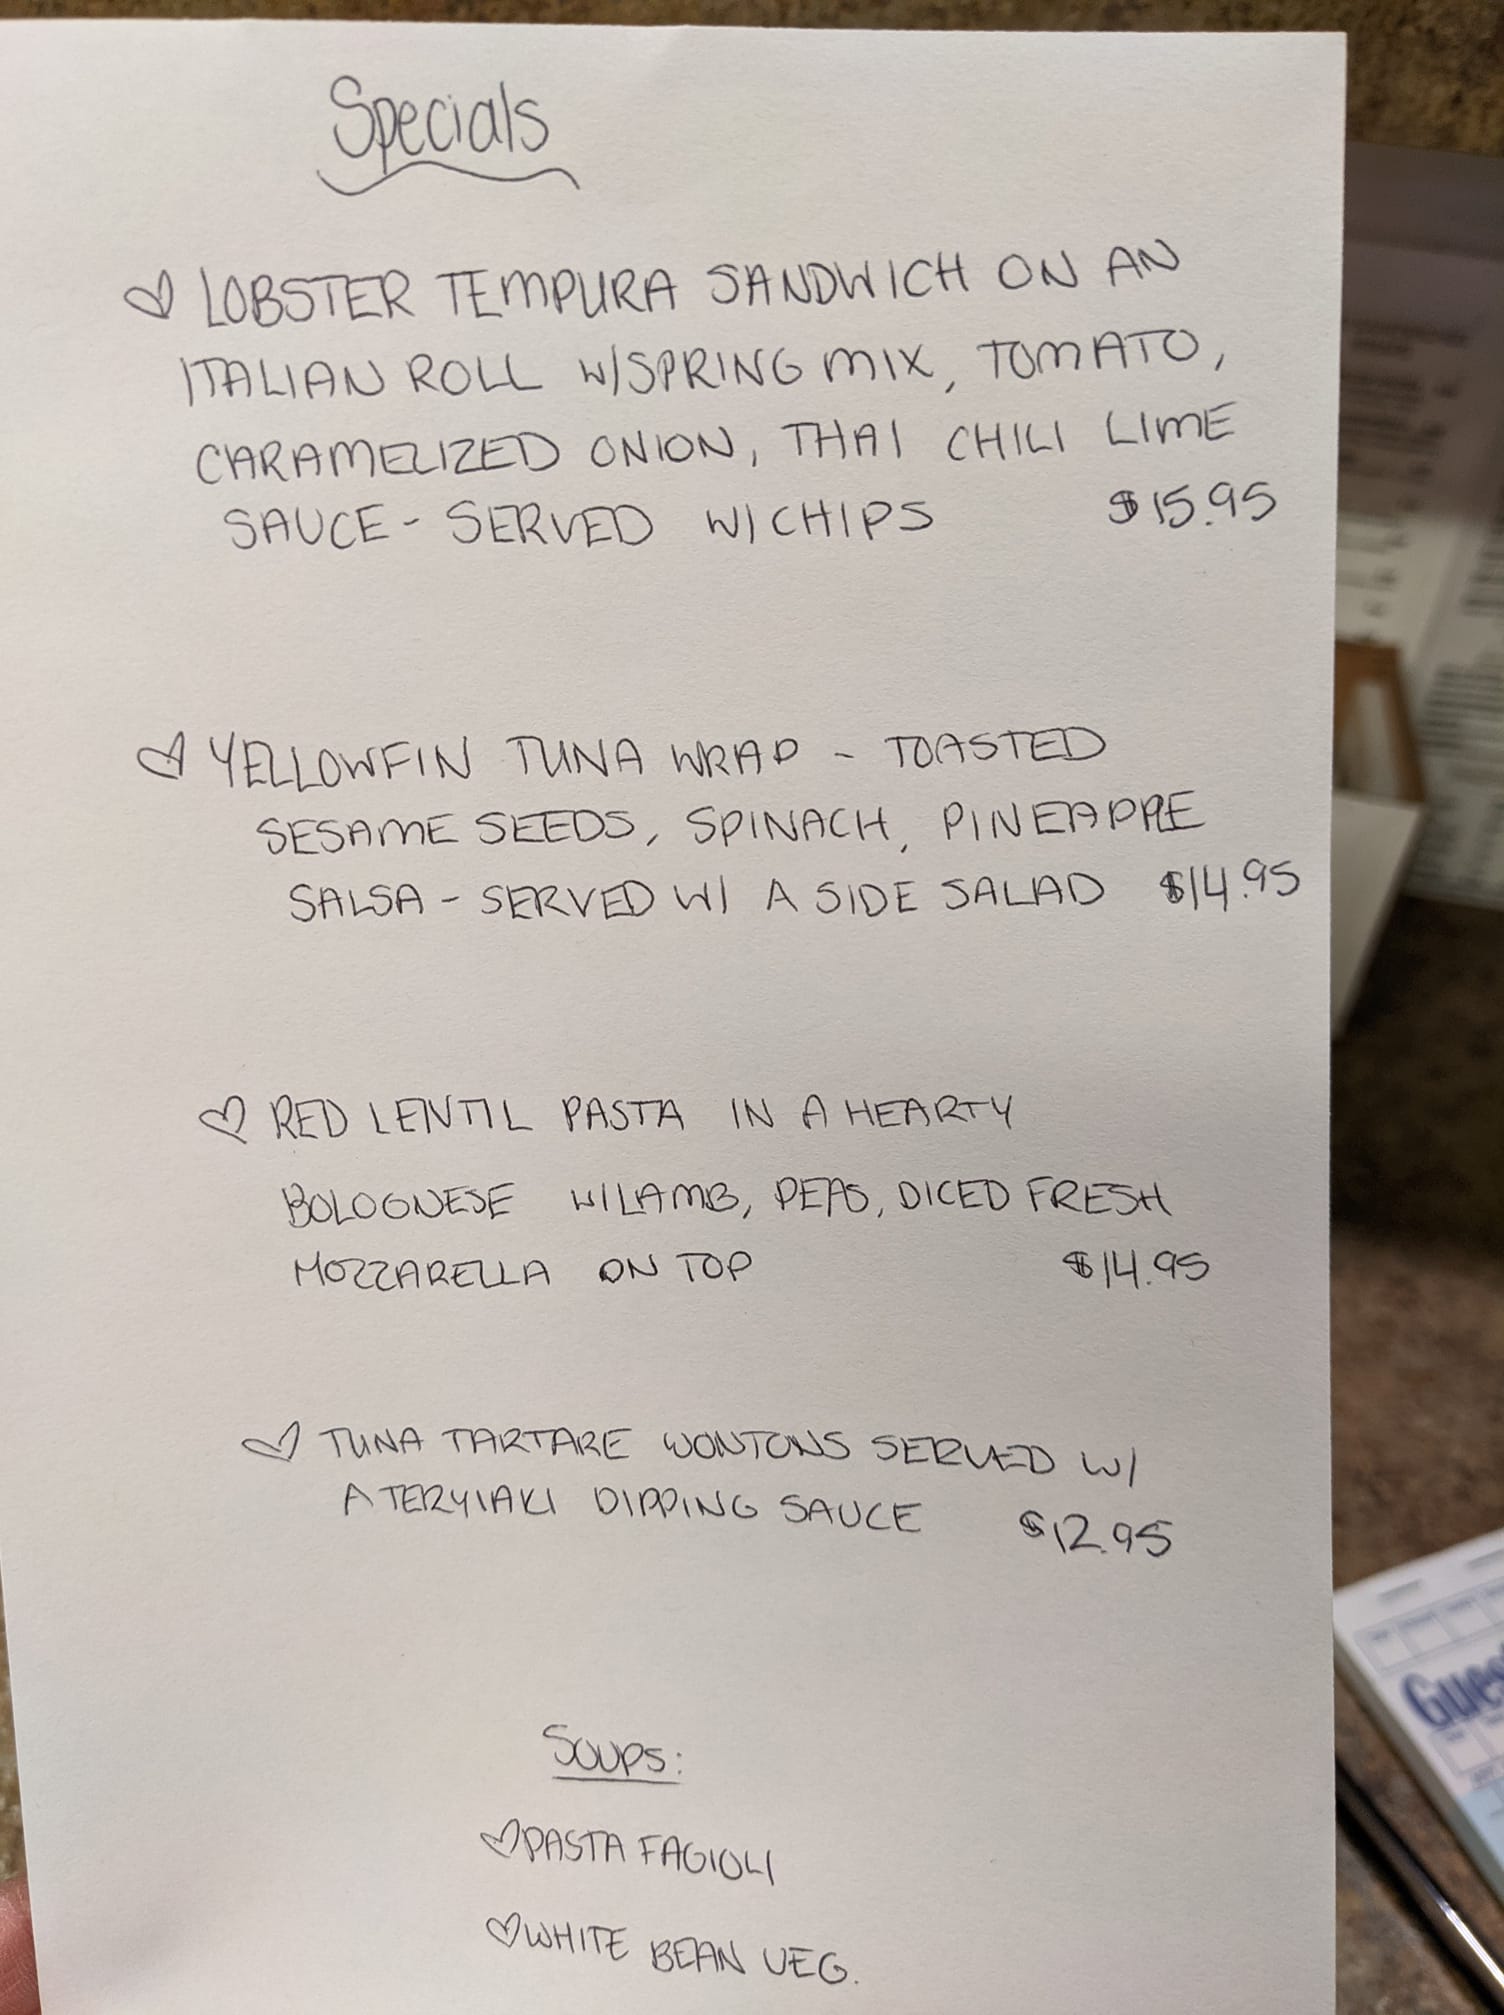 Specials
♡ LOBSTER TEMPURA SANDWICH ON AN
ITALIAN ROLL W/SPRING MIX, TOMATO,
CARAMELIZED ONION, THAI CHILI LIME
SAUCE - SERVED W/CHIPS $15.95
♡ YELLOWFIN TUNA WRAP - TOASTED
SESAME SEEDS, SPINACH, PINEAPPLE
SALSA - SERVED W/ A SIDE SALAD $14.95
♡ RED LENTIL PASTA IN A HEARTY
BOLOGNESE W/LAMB, PEAS, DICED FRESH
MOZZARELLA ON TOP $14.95
♡ TUNA TARTARE WONTONS SERVED W/
A TERYIAKI DIPPING SAUCE $12.95
SOUPS:
♡ PASTA FAGIOLI
♡ WHITE BEAN VEG.